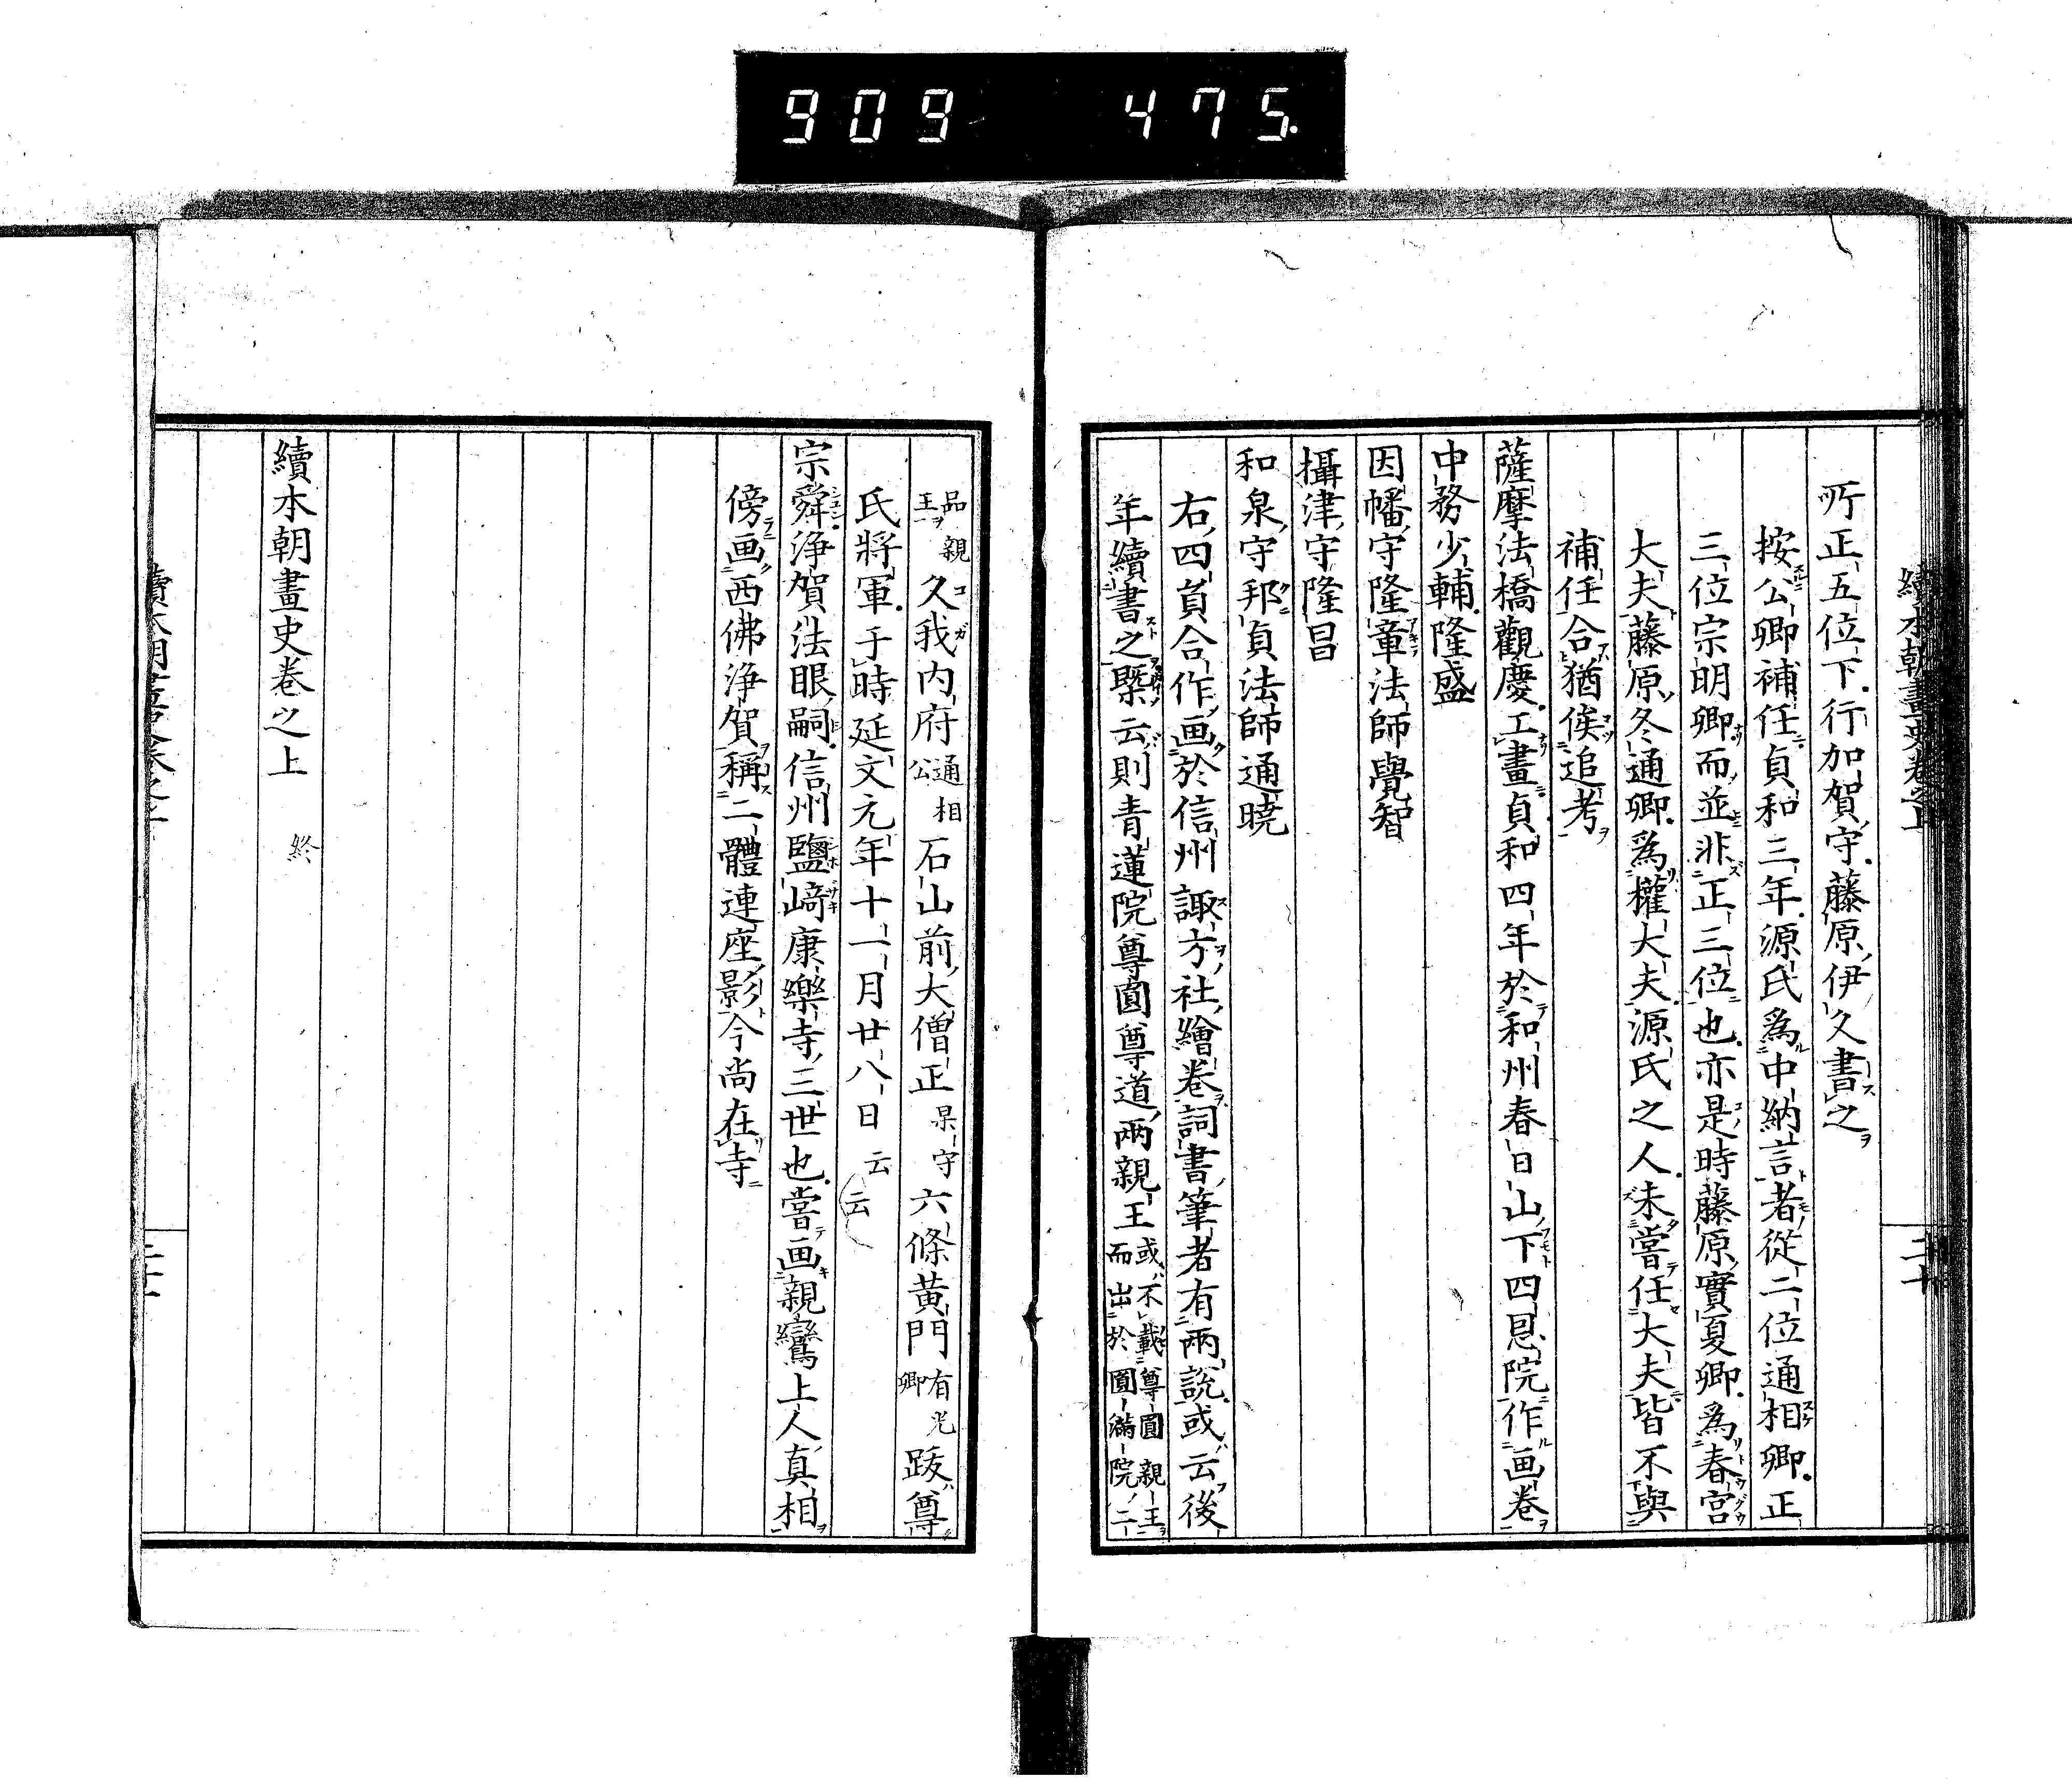 909 475.
續本朝畫史卷之上
二十
所正五位下行加賀守藤原伊久書之
按公卿補任貞和三年源氏爲中納言者從二位通相卿正
三位宗明卿而並非正三位也亦是時藤原實夏卿爲春宮
大夫藤原冬通卿爲權大夫源氏之人未嘗任大夫皆不與
補任合猶俟追考
薩摩法橋觀慶工畫貞和四年於和州春日山下四恩院作画卷
中務少輔隆盛
因幡守隆章法師覺智
攝津守隆昌
和泉守邦貞法師通曉
右四員合作画於信州諏方社繪卷詞書筆者有兩説或云後
年續書之槩云則青蓮院尊圓尊道兩親王或不載尊圓親王而出於圓滿院二
品親王久我内府通相公石山前大僧正杲守六條黄門有光卿跋尊
氏將軍于時延文元年十一月廿八日云云
宗舜浄賀法眼嗣信州鹽﨑康樂寺三世也嘗画親鸞上人真相
傍画西佛浄賀稱二體連座影今尚在寺
續本朝畫史卷之上 終